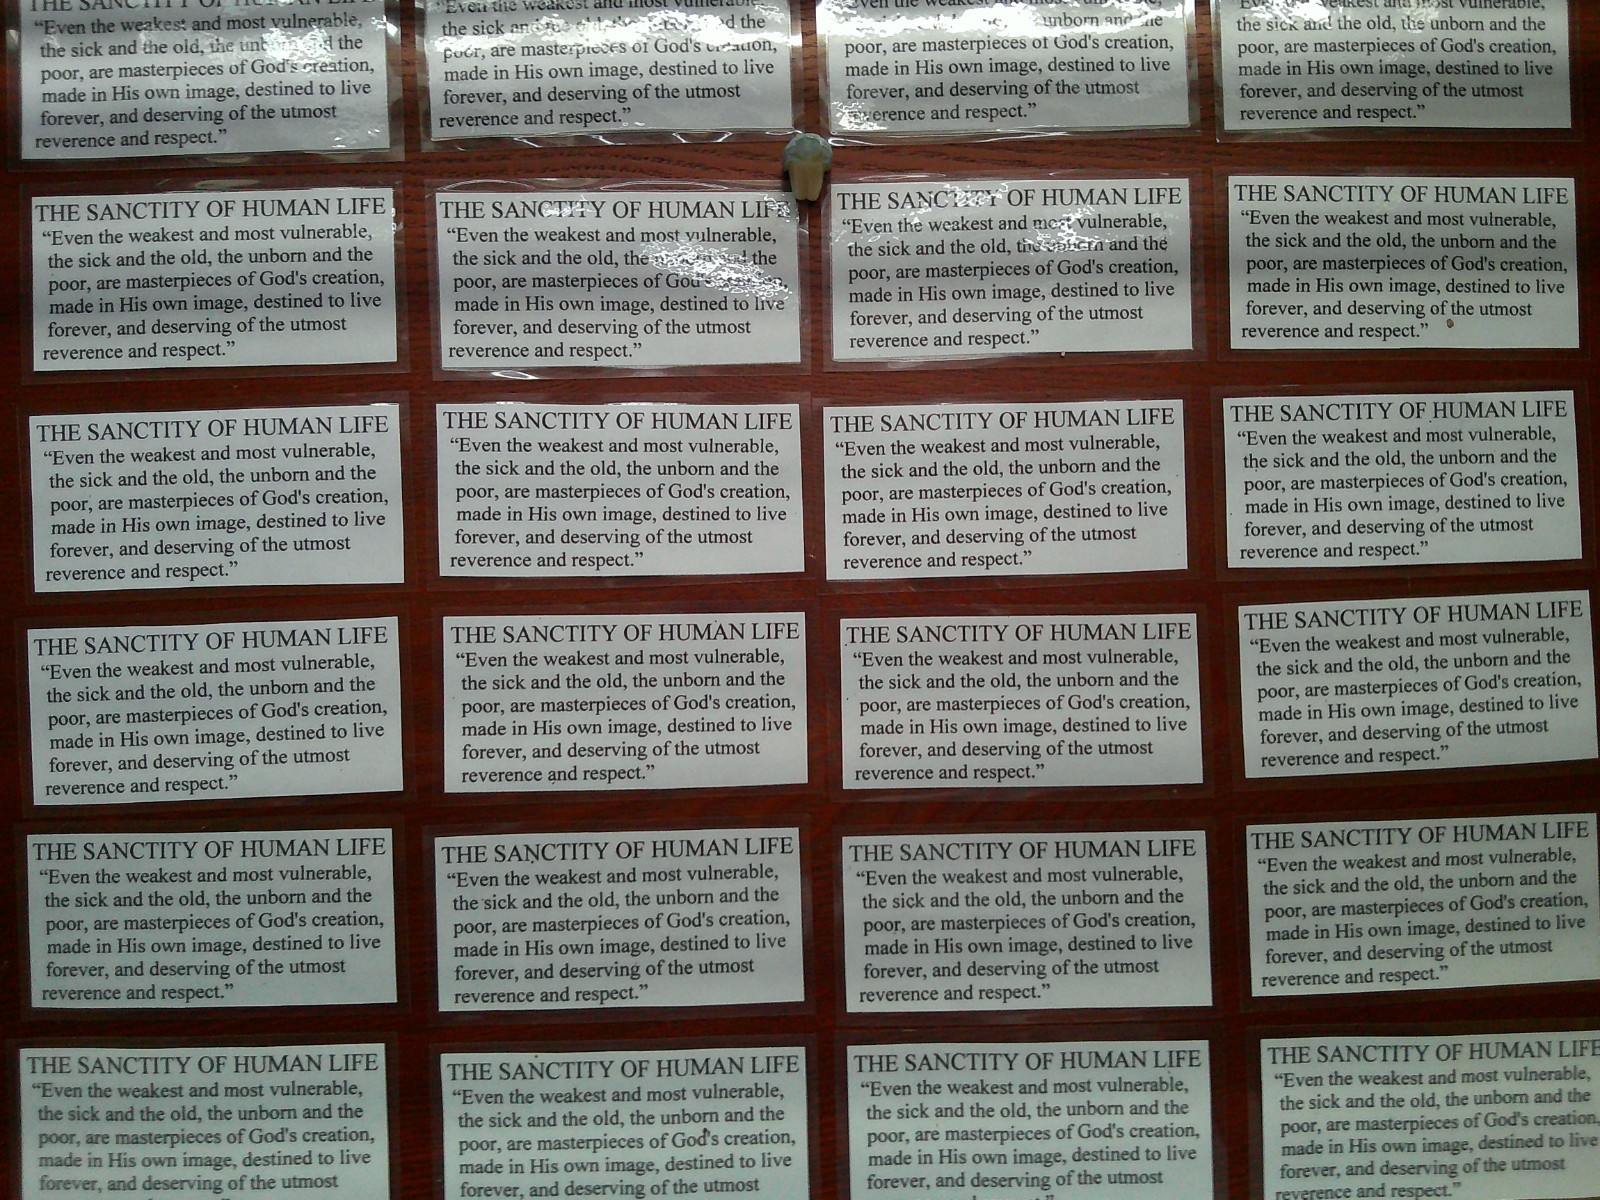 THE SANCTITY OF HUMAN LIFE
“Even the weakest and most vulnerable,
the sick and the old, the unborn and the
poor, are masterpieces of God's creation,
made in His own image, destined to live
forever, and deserving of the utmost
reverence and respect.”
“Even the weakest and most vulnerable,
the sick and the
poor, are masterpieces of God's creation,
made in His own image, destined to live
forever, and deserving of the utmost
reverence and respect.”
“Even the weakest and most
unborn and the
poor, are masterpieces of God's creation,
made in His own image, destined to live
forever, and deserving of the utmost
reverence and respect.”
“Even the weakest and most vulnerable,
the sick and the old, the unborn and the
poor, are masterpieces of God's creation,
made in His own image, destined to live
forever, and deserving of the utmost
reverence and respect.”
THE SANCTITY OF HUMAN LIFE
“Even the weakest and most vulnerable,
the sick and the old, the unborn and the
poor, are masterpieces of God's creation,
made in His own image, destined to live
forever, and deserving of the utmost
reverence and respect.”
THE SANCTITY OF HUMAN LIFE
“Even the weakest and most vulnerable,
the sick and the old, the and the
poor, are masterpieces of God's
made in His own image, destined to live
forever, and deserving of the utmost
reverence and respect.”
THE SANCTITY OF HUMAN LIFE
“Even the weakest and most vulnerable,
the sick and the old, the unborn and the
poor, are masterpieces of God's creation,
made in His own image, destined to live
forever, and deserving of the utmost
reverence and respect.”
THE SANCTITY OF HUMAN LIFE
“Even the weakest and most vulnerable,
the sick and the old, the unborn and the
poor, are masterpieces of God's creation,
made in His own image, destined to live
forever, and deserving of the utmost
reverence and respect.”
THE SANCTITY OF HUMAN LIFE
“Even the weakest and most vulnerable,
the sick and the old, the unborn and the
poor, are masterpieces of God's creation,
made in His own image, destined to live
forever, and deserving of the utmost
reverence and respect.”
THE SANCTITY OF HUMAN LIFE
“Even the weakest and most vulnerable,
the sick and the old, the unborn and the
poor, are masterpieces of God's creation,
made in His own image, destined to live
forever, and deserving of the utmost
reverence and respect.”
THE SANCTITY OF HUMAN LIFE
“Even the weakest and most vulnerable,
the sick and the old, the unborn and the
poor, are masterpieces of God's creation,
made in His own image, destined to live
forever, and deserving of the utmost
reverence and respect.”
THE SANCTITY OF HUMAN LIFE
“Even the weakest and most vulnerable,
the sick and the old, the unborn and the
poor, are masterpieces of God's creation,
made in His own image, destined to live
forever, and deserving of the utmost
reverence and respect.”
THE SANCTITY OF HUMAN LIFE
“Even the weakest and most vulnerable,
the sick and the old, the unborn and the
poor, are masterpieces of God's creation,
made in His own image, destined to live
forever, and deserving of the utmost
reverence and respect.”
THE SANCTITY OF HUMAN LIFE
“Even the weakest and most vulnerable,
the sick and the old, the unborn and the
poor, are masterpieces of God's creation,
made in His own image, destined to live
forever, and deserving of the utmost
reverence and respect.”
THE SANCTITY OF HUMAN LIFE
“Even the weakest and most vulnerable,
the sick and the old, the unborn and the
poor, are masterpieces of God's creation,
made in His own image, destined to live
forever, and deserving of the utmost
reverence and respect.”
THE SANCTITY OF HUMAN LIFE
“Even the weakest and most vulnerable,
the sick and the old, the unborn and the
poor, are masterpieces of God's creation,
made in His own image, destined to live
forever, and deserving of the utmost
reverence and respect.”
THE SANCTITY OF HUMAN LIFE
“Even the weakest and most vulnerable,
the sick and the old, the unborn and the
poor, are masterpieces of God's creation,
made in His own image, destined to live
forever, and deserving of the utmost
reverence and respect.”
THE SANCTITY OF HUMAN LIFE
“Even the weakest and most vulnerable,
the sick and the old, the unborn and the
poor, are masterpieces of God's creation,
made in His own image, destined to live
forever, and deserving of the utmost
reverence and respect.”
THE SANCTITY OF HUMAN LIFE
“Even the weakest and most vulnerable,
the sick and the old, the unborn and the
poor, are masterpieces of God's creation,
made in His own image, destined to live
forever, and deserving of the utmost
reverence and respect.”
THE SANCTITY OF HUMAN LIFE
“Even the weakest and most vulnerable,
the sick and the old, the unborn and the
poor, are masterpieces of God's creation,
made in His own image, destined to live
forever, and deserving of the utmost
reverence and respect.”
THE SANCTITY OF HUMAN LIFE
“Even the weakest and most vulnerable,
the sick and the old, the unborn and the
poor, are masterpieces of God's creation,
made in His own image, destined to live
forever, and deserving of the utmost
THE SANCTITY OF HUMAN LIFE
“Even the weakest and most vulnerable,
the sick and the old, the unborn and the
poor, are masterpieces of God's creation,
made in His own image, destined to live
forever, and deserving of the utmost
THE SANCTITY OF HUMAN LIFE
“Even the weakest and most vulnerable,
the sick and the old, the unborn and the
poor, are masterpieces of God's creation,
made in His own image, destined to live
forever, and deserving of the utmost
THE SANCTITY OF HUMAN LIFE
“Even the weakest and most vulnerable,
the sick and the old, the unborn and the
poor, are masterpieces of God's creation,
made in His own image, destined to live
forever, and deserving of the utmost
reverence and respect.”